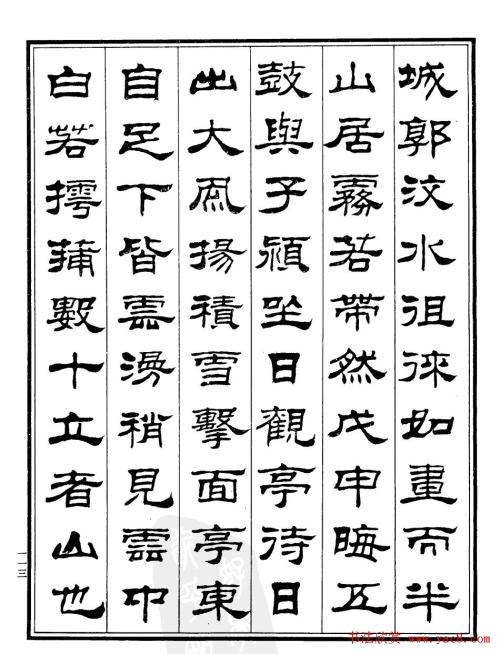 城郭汶水徂徠如畫而半
山居霧若帶然戊申晦五
鼓與子潁坐日觀亭待日
出大風揚積雪擊面亭東
自足下皆雲漫稍見雲中
白若摴蒱數十立者山也
一一三
书法欣赏 www.yac8.com